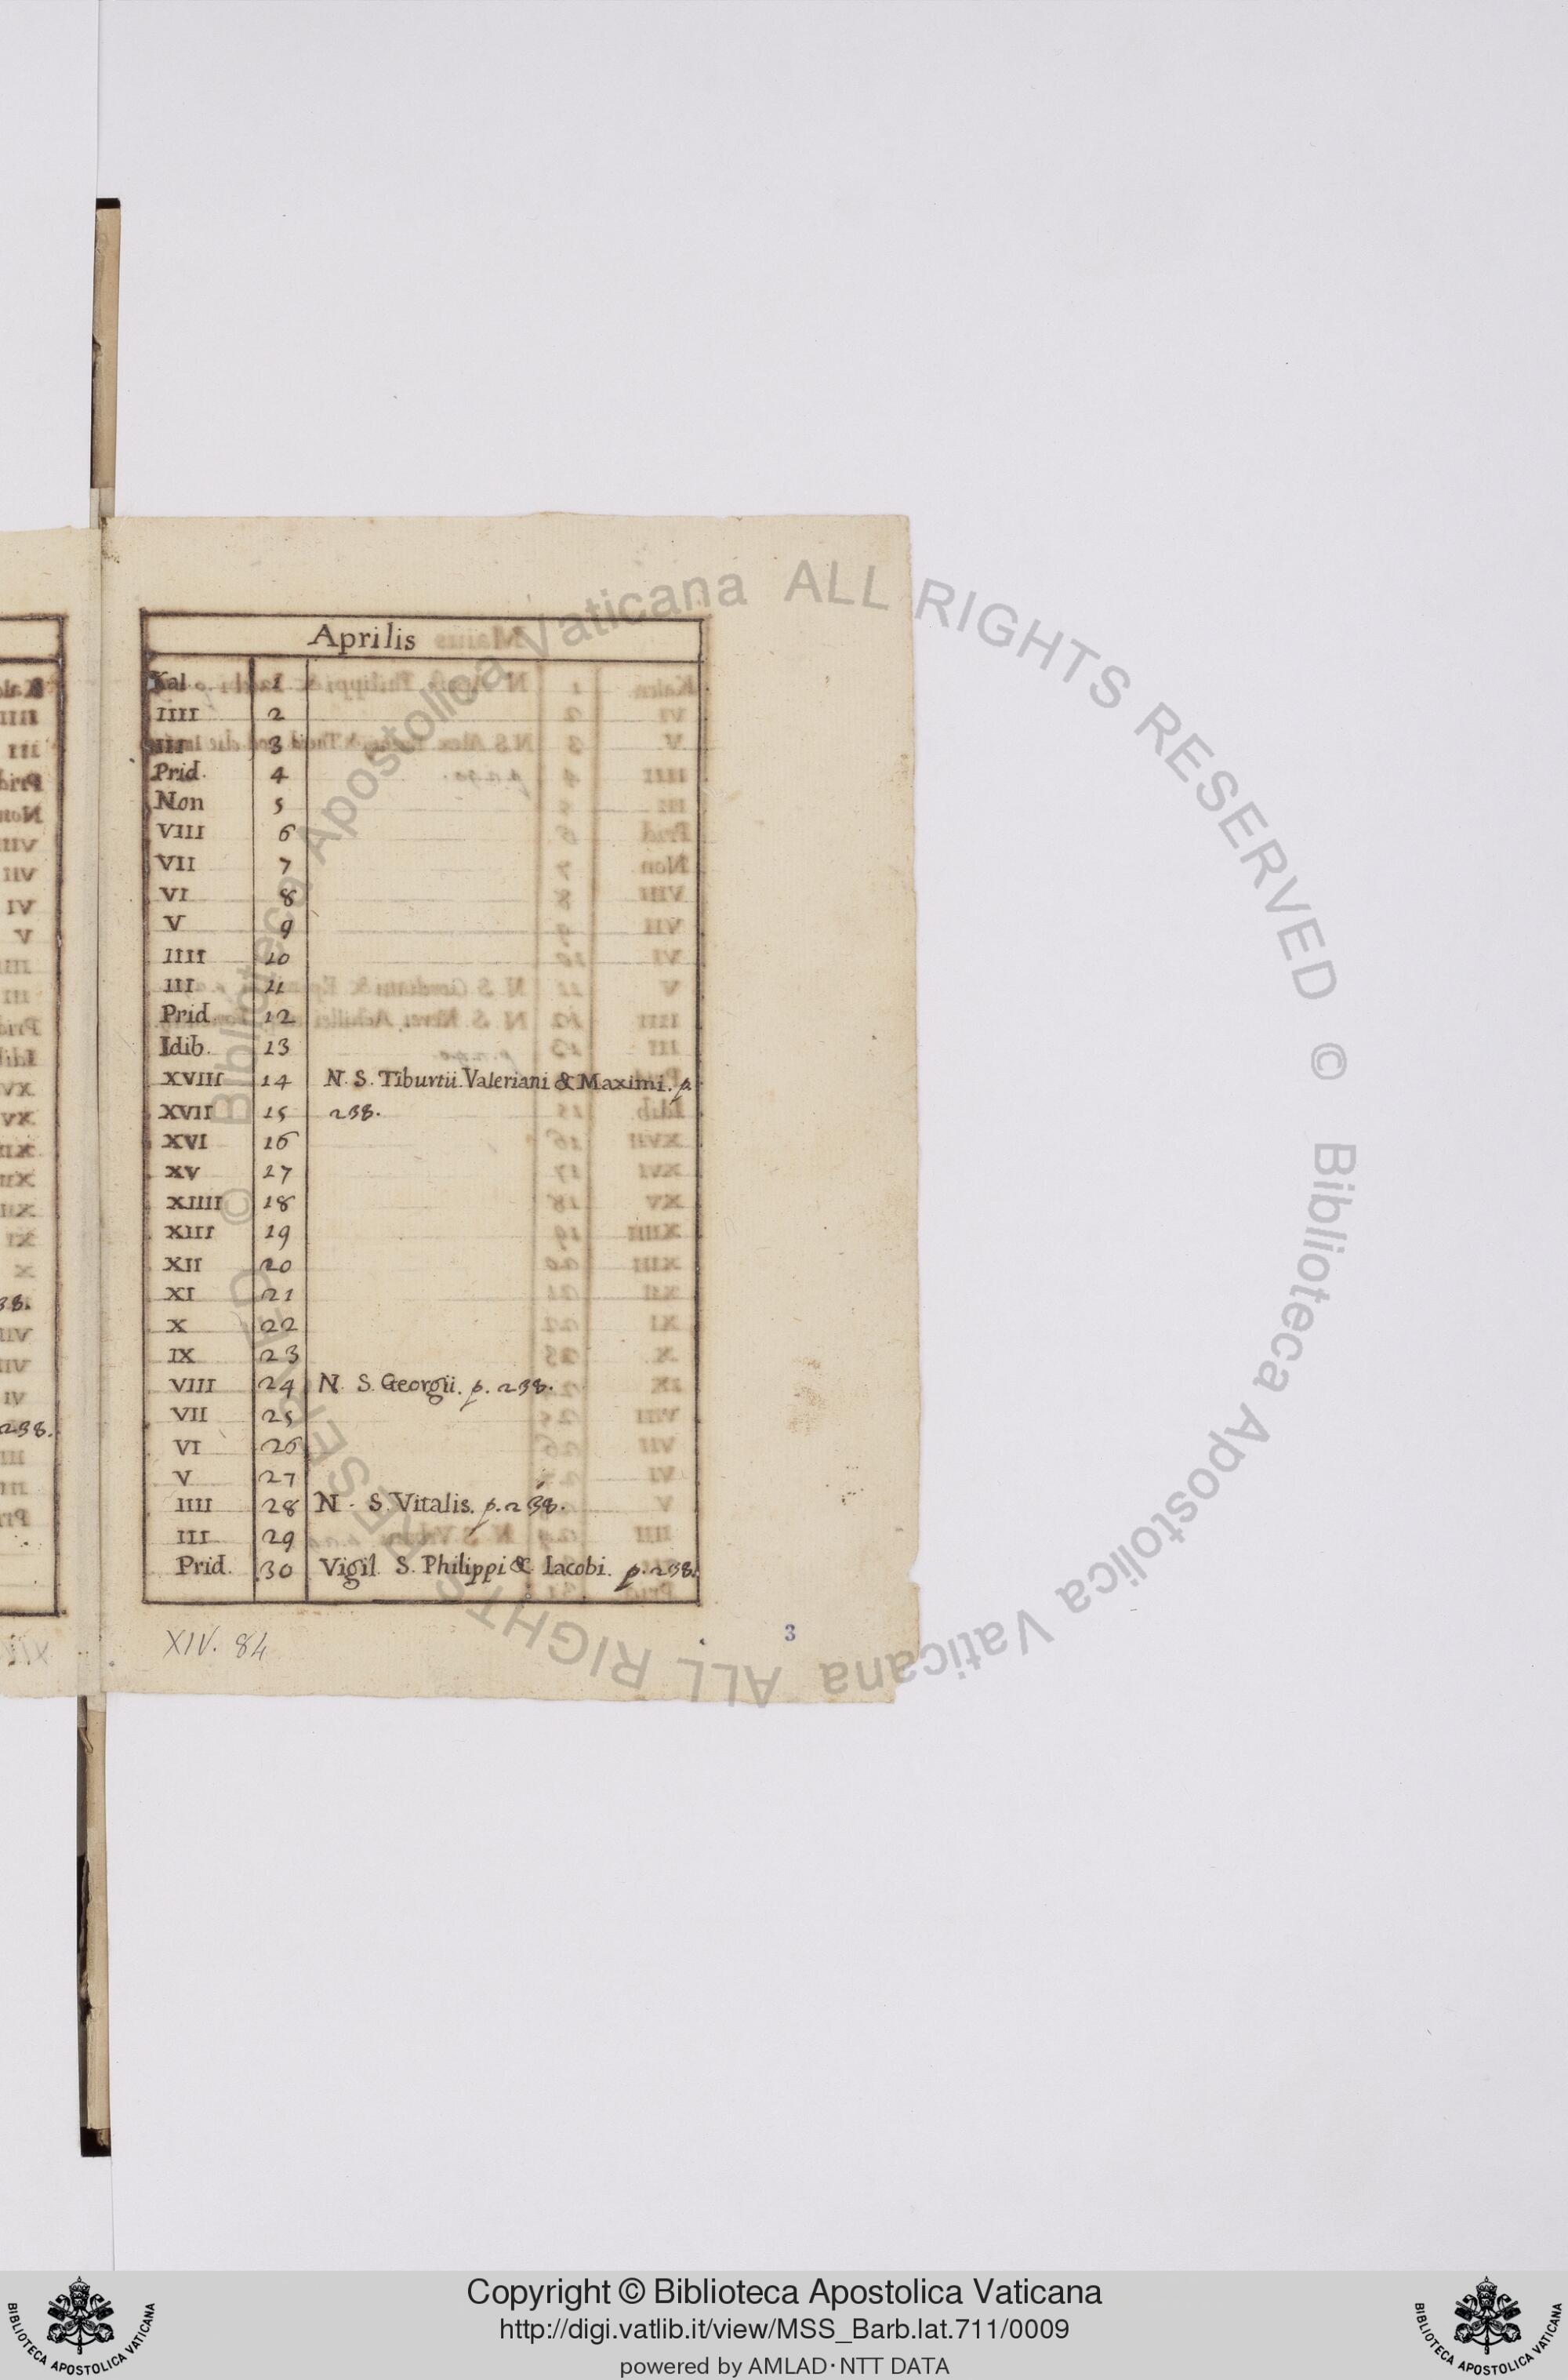 Aprilis
Kal 1
IIII 2
III 3
Prid. 4
Non 5
VIII 6
VII 7
VI 8
V 9
IIII 10
III 11
Prid 12
Idib. 13
XVIII 14 N. S. Tiburtii Valeriani & Maximi. p.
XVII 15 238.
XVI 16
XV 17
XIIII 18
XIII 19
XII 20
XI 21
X 22
IX 23
VIII 24 N. S. Georgii. p. 238.
VII 25
VI 26
V 27
IIII 28 N. S. Vitalis. p. 238.
III 29
Prid. 30 Vigil. S. Philippi & Iacobi. p. 238.
XIV. 84
3
© Biblioteca Apostolica Vaticana ALL RIGHTS RESERVED © Biblioteca Apostolica Vaticana ALL RIGHTS RESERVED
Copyright © Biblioteca Apostolica Vaticana
http://digi.vatlib.it/view/MSS_Barb.lat.711/0009
powered by AMLAD·NTT DATA
BIBLIOTECA APOSTOLICA VATICANA
BIBLIOTECA APOSTOLICA VATICANA